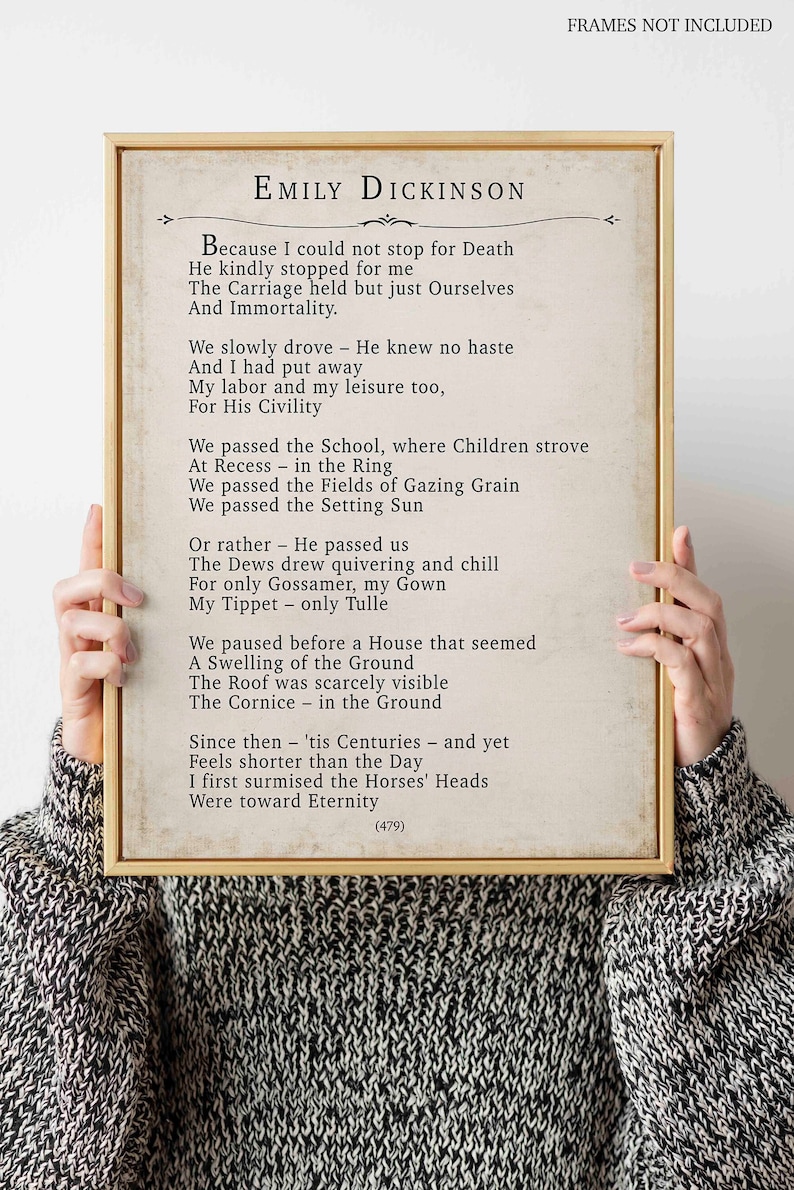 FRAMES NOT INCLUDED
EMILY DICKINSON
Because I could not stop for Death
He kindly stopped for me
The Carriage held but just Ourselves
And Immortality.
We slowly drove – He knew no haste
And I had put away
My labor and my leisure too,
For His Civility
We passed the School, where Children strove
At Recess – in the Ring
We passed the Fields of Gazing Grain
We passed the Setting Sun
Or rather – He passed us
The Dews drew quivering and chill
For only Gossamer, my Gown
My Tippet – only Tulle
We paused before a House that seemed
A Swelling of the Ground
The Roof was scarcely visible
The Cornice – in the Ground
Since then – 'tis Centuries – and yet
Feels shorter than the Day
I first surmised the Horses' Heads
Were toward Eternity
(479)